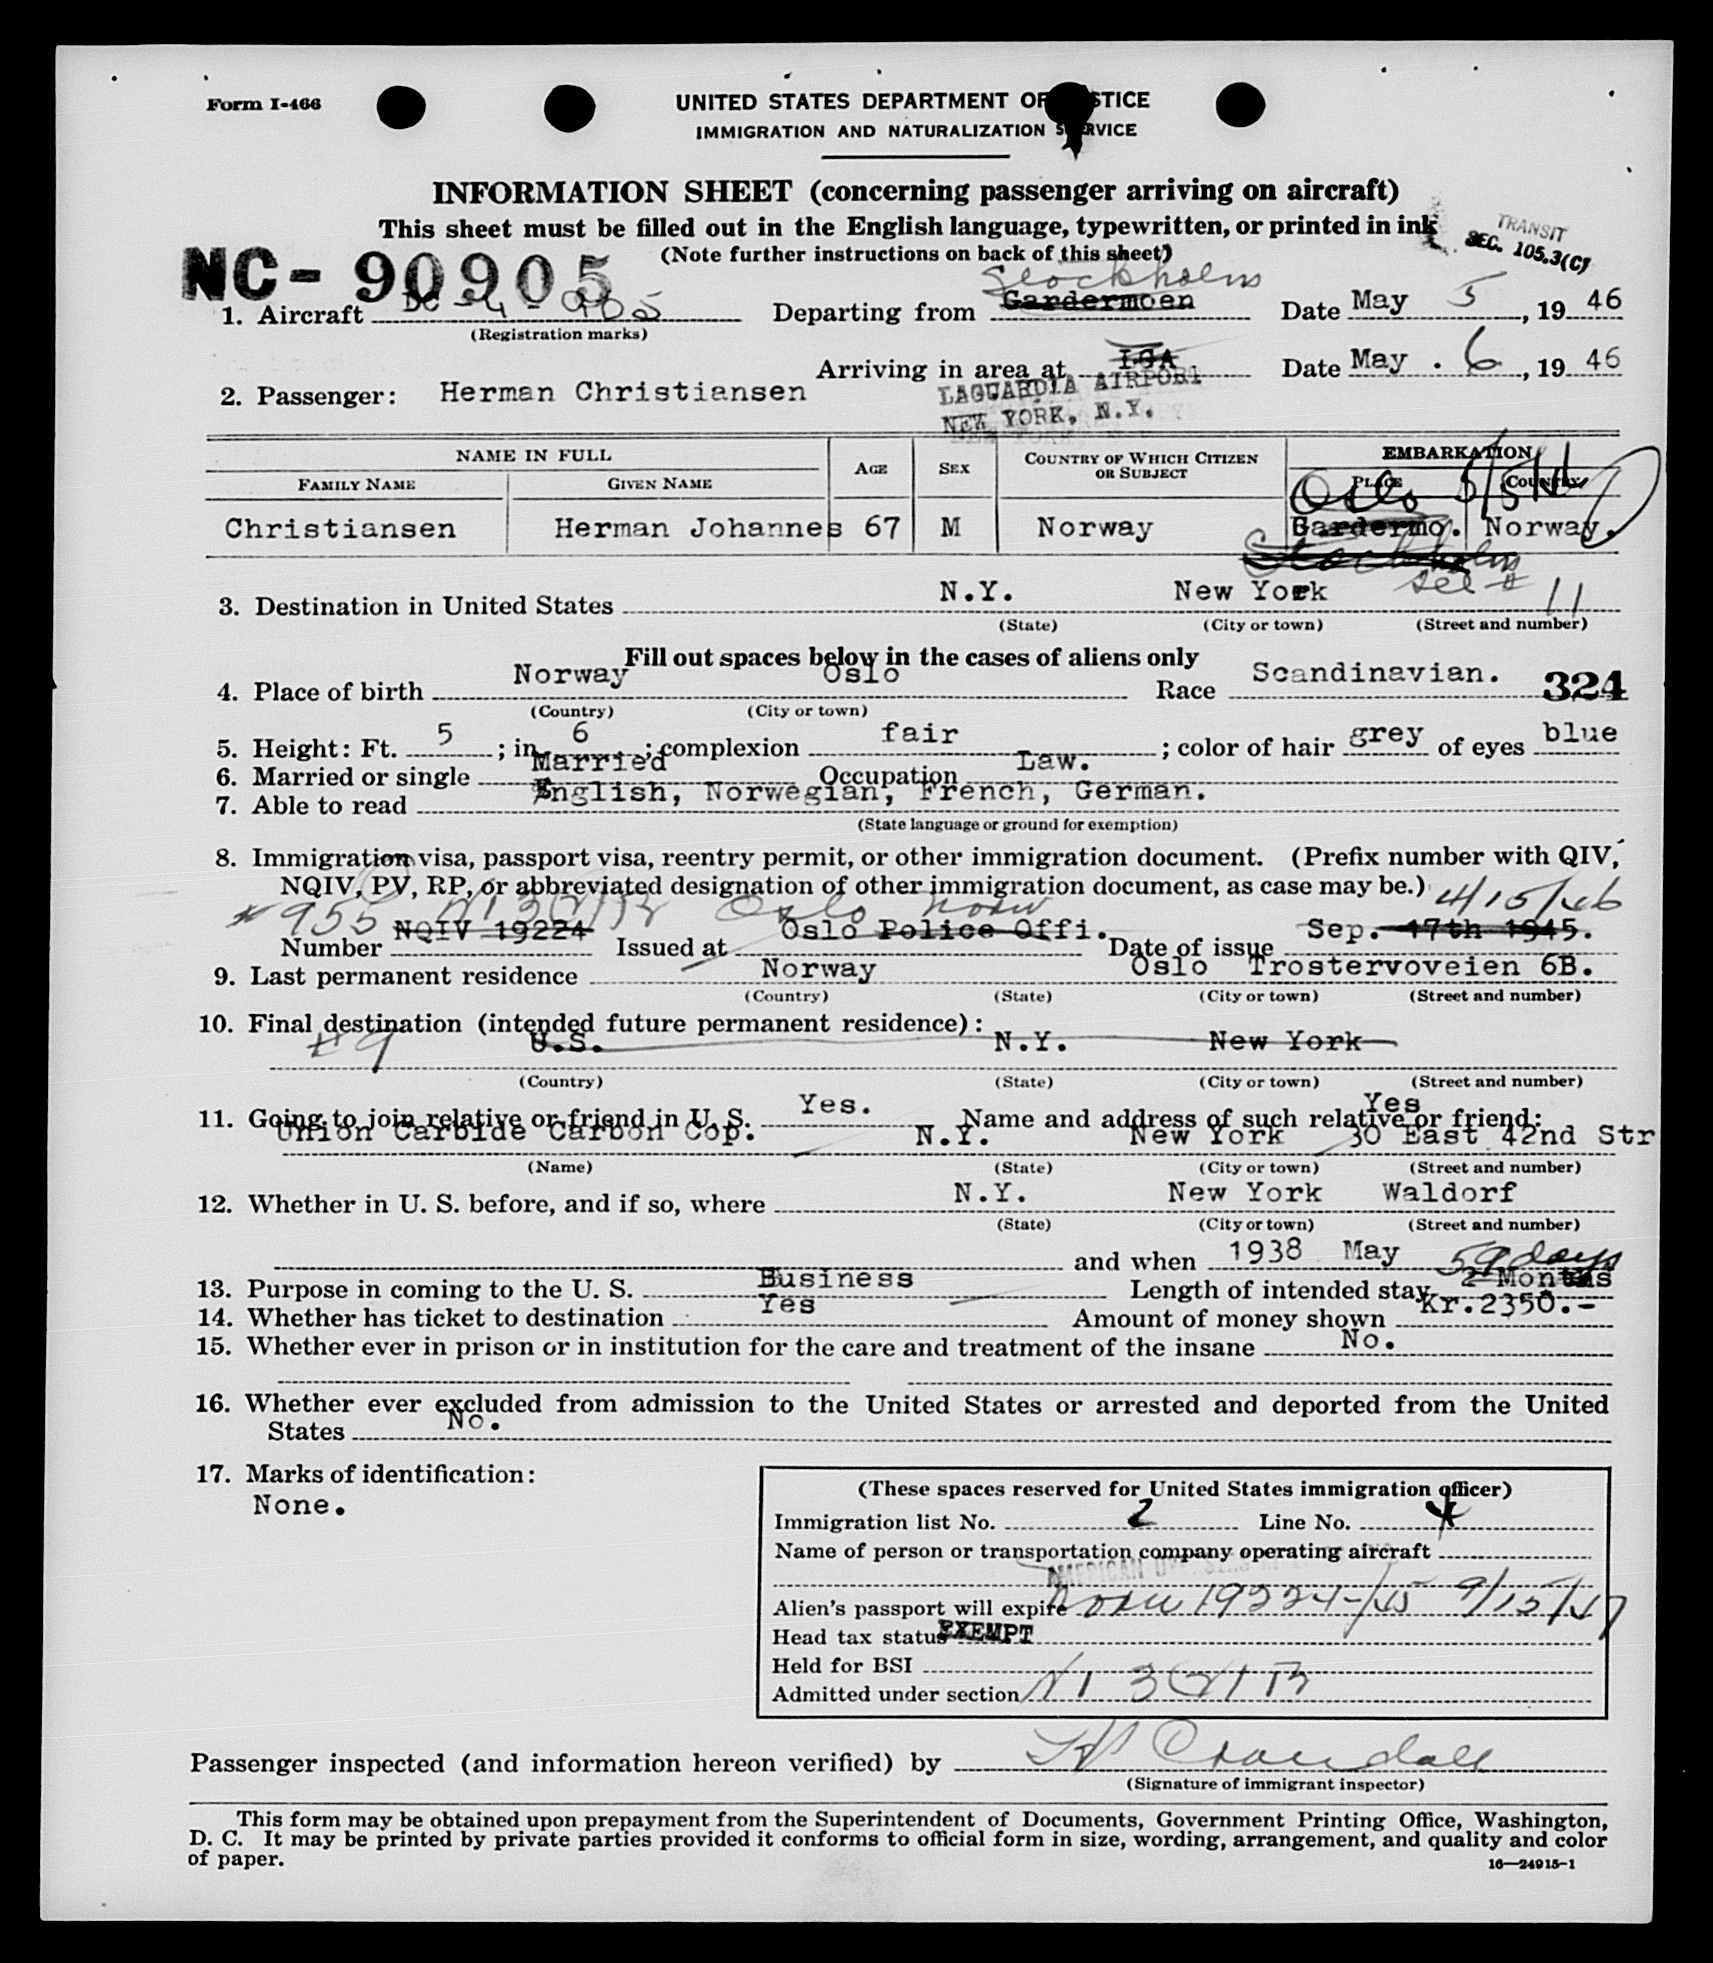 Form I-466
UNITED STATES DEPARTMENT OF JUSTICE
IMMIGRATION AND NATURALIZATION SERVICE
INFORMATION SHEET (concerning passenger arriving on aircraft)
This sheet must be filled out in the English language, typewritten, or printed in ink
TRANSIT
SEC. 105.3(C)
(Note further instructions on back of this sheet)
NC-90905
Stockholm
1. Aircraft DC-4-905 Departing from Gardermoen Date May 5, 19 46
(Registration marks)
Arriving in area at LGA Date May . 6, 19 46
LAGUARDIA AIRPORT
NEW YORK, N.Y.
2. Passenger: Herman Christiansen
NAME IN FULL AGE SEX COUNTRY OF WHICH CITIZEN OR SUBJECT EMBARKATION
FAMILY NAME GIVEN NAME PLACE COUNTRY
Oslo 5/5/46
Christiansen Herman Johannes 67 M Norway Gardermo. Norway.
Stockholm
see # 11
3. Destination in United States N.Y. New York
(State) (City or town) (Street and number)
Fill out spaces below in the cases of aliens only
4. Place of birth Norway Oslo Race Scandinavian. 324
(Country) (City or town)
5. Height: Ft. 5 ; in. 6 ; complexion fair ; color of hair grey of eyes blue
6. Married or single Married Occupation Law.
7. Able to read English, Norwegian, French, German.
(State language or ground for exemption)
8. Immigration visa, passport visa, reentry permit, or other immigration document. (Prefix number with QIV,
NQIV, PV, RP, or abbreviated designation of other immigration document, as case may be.)
# 955 Oslo Norw 4/15/46
Number NQIV 19224 Issued at Oslo Police Offi. Date of issue Sep. 17th 1945.
9. Last permanent residence Norway Oslo Trostervoveien 6B.
(Country) (State) (City or town) (Street and number)
10. Final destination (intended future permanent residence):
#9 U.S. N.Y. New York
(Country) (State) (City or town) (Street and number)
11. Going to join relative or friend in U. S. Yes. Name and address of such relative or friend: Yes
Union Carbide Carbon Cop. N.Y. New York 30 East 42nd Str
(Name) (State) (City or town) (Street and number)
12. Whether in U. S. before, and if so, where N.Y. New York Waldorf
(State) (City or town) (Street and number)
and when 1938 May
59 days
13. Purpose in coming to the U. S. Business Length of intended stay 2 Months
14. Whether has ticket to destination Yes Amount of money shown Kr.2350.-
15. Whether ever in prison or in institution for the care and treatment of the insane No.
16. Whether ever excluded from admission to the United States or arrested and deported from the United
States No.
17. Marks of identification:
None.
(These spaces reserved for United States immigration officer)
Immigration list No. 2 Line No. 4
Name of person or transportation company operating aircraft
AMERICAN
Alien's passport will expire Norw 19224-/45 9/15/47
Head tax status EXEMPT
Held for BSI
Admitted under section
Passenger inspected (and information hereon verified) by Crandall
(Signature of immigrant inspector)
This form may be obtained upon prepayment from the Superintendent of Documents, Government Printing Office, Washington,
D. C. It may be printed by private parties provided it conforms to official form in size, wording, arrangement, and quality and color
of paper.
16—24915-1